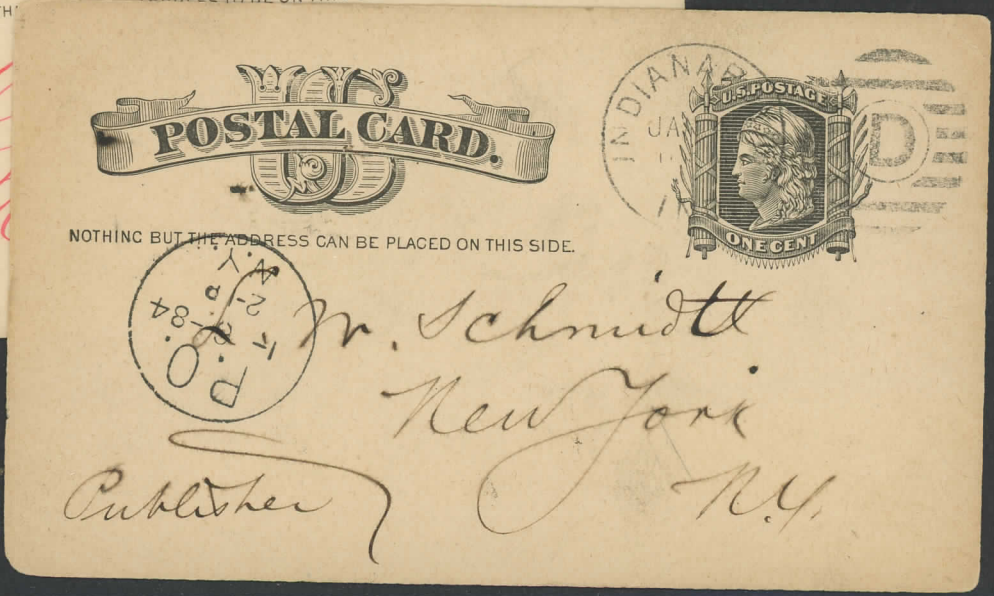 US
POSTAL CARD.
NOTHING BUT THE ADDRESS CAN BE PLACED ON THIS SIDE.
INDIANAP
JA
U.S. POSTAGE
ONE CENT
D
N.Y.
84
P.O.
W. Schmidt
New York
N.Y.
Publisher